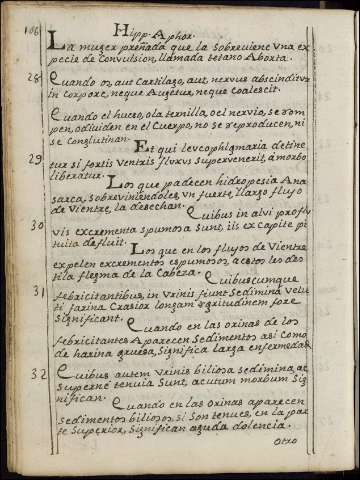 106
Hipp. Aphor.
La muger preñada que la sobreviene vna ex
pecie de Convulsion, llamada tetano Aborta.
28 Quando os, aut Cartilago, aut nervus abscinditur
in Corpore, neque Augetur, neque Coalescit.
Quando el hueso, ola ternilla, o el nervio, se rom
pen, o diuiden en el Cuerpo, no se reproducen, ni
se Conglutinan.
29 Et qui levcophlgmaria detine
tur si fortis Ventris fluxus supervenerit, à morbo
liberatur.
Los que padecen hidropesia Ana
sarca, sobreviniendoles, vn fuerte, llargo flujo
de Vientre, la desechan.
30 Quibus in alvi proflu
viis excrementa spumosa sunt, iis ex Capite pi
tuita defluit.
Los que en los flujos de Vientre
expelen excrementos espumosos, a estos les des
tila flegma de la Cabeza.
31 Quibuscumque
febricitantibus, in Vrinis fiunt Sedimina velu
ti farina Crasior longam ægritudinem fore
significant.
Quando en las orinas de los
febricitantes Aparecen Sedimentos asi como
de harina gruesa, significa larga enfermedad.
32 Quibus autem Vrinis biliosa sedimina, ac
Superne tenuia sunt, acutum morbum sig
nifican.
Quando en las orinas aparecen
sedimentos biliosos, si son tenues, en la par
te Superior, significan aguda dolencia.
otro